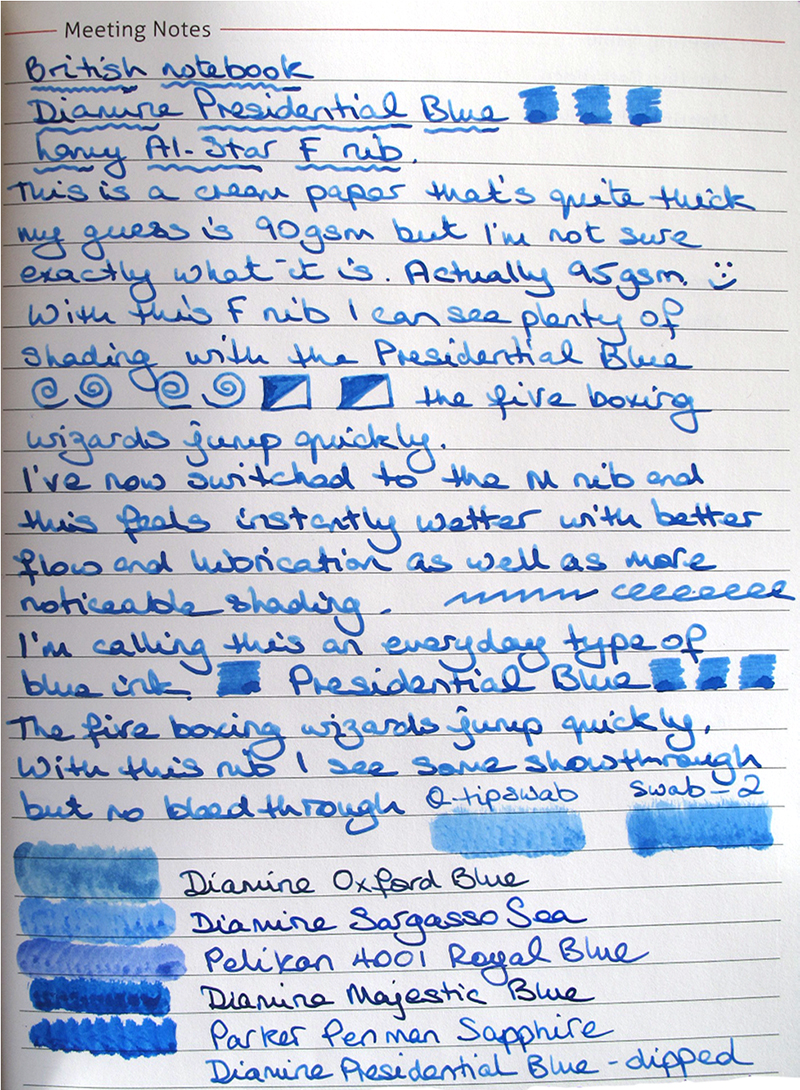 Meeting Notes
British notebook
Diamine Presidential Blue
Lamy Al-Star F nib.
This is a cream paper that's quite thick
my guess is 90gsm but I'm not sure
exactly what it is. Actually 95gsm.
With this F nib I can see plenty of
shading with the Presidential Blue
the five boxing
wizards jump quickly.
I've now switched to the M nib and
this feels instantly wetter with better
flow and lubrication as well as more
noticeable shading.
I'm calling this an everyday type of
blue ink. Presidential Blue
The five boxing wizards jump quickly.
With this nib I see some showthrough
but no bleedthrough Q-tip swab swab-2
Diamine Oxford Blue
Diamine Sargasso Sea
Pelikan 4001 Royal Blue
Diamine Majestic Blue
Parker Penman Sapphire
Diamine Presidential Blue - dipped